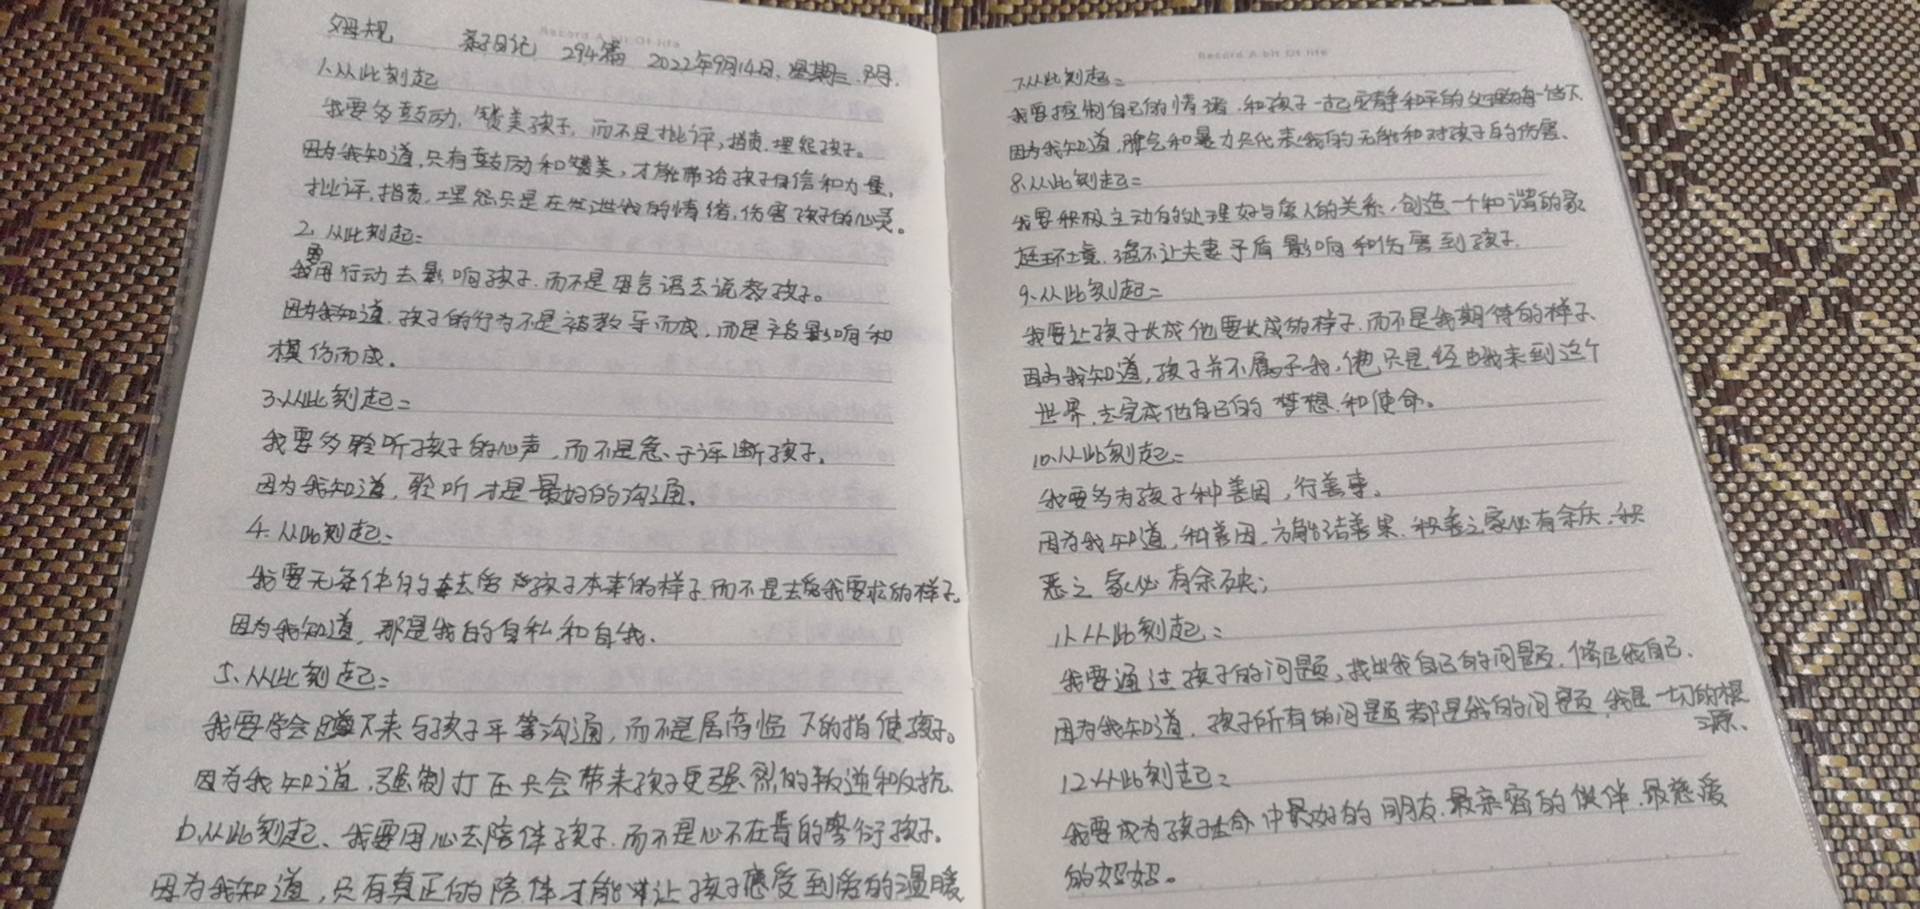 母规 亲子日记 294篇 2022年9月14日. 星期三.
1.从此刻起
我要多鼓励,赞美孩子,而不是批评,指责.埋怨孩子。
因为我知道,只有鼓励和赞美,才能带给孩子自信和力量,
批评,指责.埋怨只是在发泄我的情绪,伤害孩子的心灵。
2.从此刻起:
我要用行动去影响孩子.而不是用言语去说教孩子。
因为我知道,孩子的行为不是被教导而成,而是被影响和
模仿而成.
3.从此刻起:
我要多聆听孩子的心声,而不是急于评断孩子.
因为我知道,聆听才是最好的沟通.
4.从此刻起:
我要无条件的去爱孩子本来的样子.而不是去爱我要求的样子.
因为我知道,那是我的自私和自我.
5.从此刻起:
我要学会蹲下来与孩子平等沟通,而不是居高临下的指使孩子。
因为我知道,强制打压只会带来孩子更强烈的叛逆和反抗
6.从此刻起、我要用心去陪伴孩子.而不是心不在焉的敷衍孩子.
因为我知道,只有真正的陪伴才能让孩子感受到爱的温暖
Record A bit Of life
7.从此刻起:
我要控制自己的情绪.和孩子一起安静和平的处理每一当下
因为我知道,脾气和暴力只代表我的无能和对孩子的伤害、
8.从此刻起:
我要积极主动的处理好与家人的关系,创造一个和谐的家
庭环境.绝不让夫妻矛盾影响和伤害到孩子.
9.从此刻起:
我要让孩子长成他要长成的样子.而不是我期待的样子、
因为我知道,孩子并不属于我,他只是经由我来到这个
世界.去完成他自己的梦想.和使命。
10.从此刻起:
我要多为孩子种善因,行善事。
因为我知道,种善因,方能结善果.积善之家必有余庆,积
恶之家必有余殃;
11.从此刻起:
我要通过孩子的问题,找出我自己的问题.修正我自己.
因为我知道,孩子所有的问题都是我的问题,我是一切的根
源、
12.从此刻起:
我要成为孩子生命中最好的朋友.最亲密的伙伴.最慈爱
的妈妈。